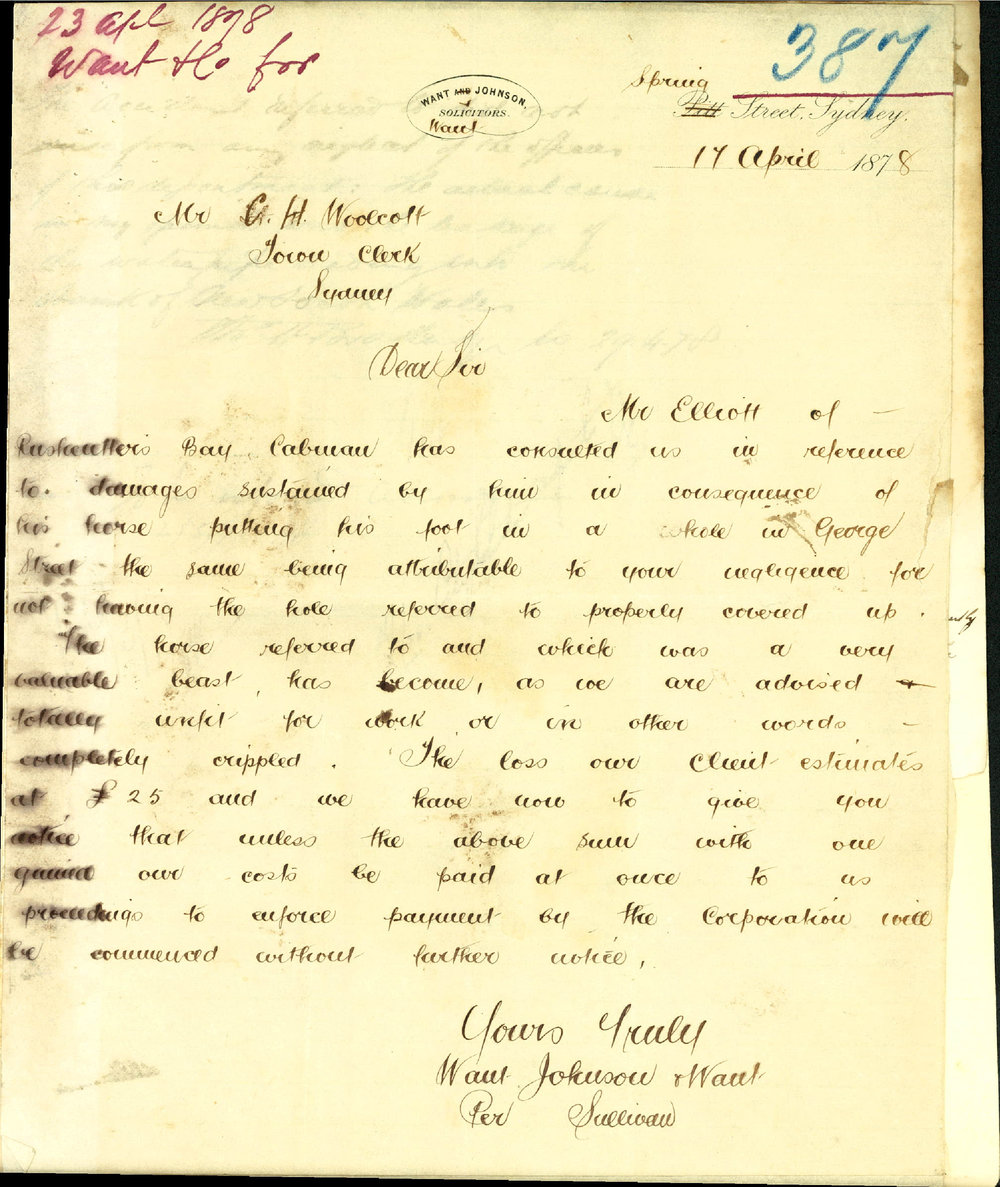 23 Apl 1878
Want & Co for
387
WANT AND JOHNSON,
& Want
SOLICITORS.
Spring
Pitt Street, Sydney.
17 April 1878
Mr C. H. Woolcott
Town Clerk
Sydney
Dear Sir
Mr Elliott of –
Rushcutters Bay, Cabman has consulted us in reference
to damages sustained by him in consequence of
his horse putting his foot in a whole in George
Street the same being attributable to your negligence for
not having the hole referred to properly covered up.
The horse referred to and which was a very
valuable beast, has become, as we are advised –
totally unfit for work or in other words –
completely crippled. The loss our Client estimates
at £25 and we have now to give you
notice that unless the above sum with one
guinea our costs be paid at once to us
proceedings to enforce payment by the Corporation will
be commenced without further notice,
Yours Truly
Want Johnson & Want
Per Sullivan